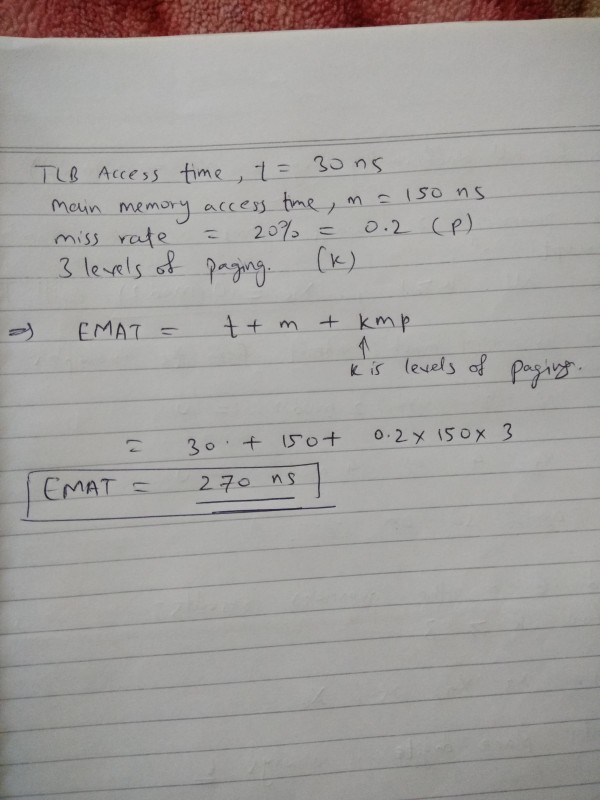 TLB Access time, t = 30 ns
main memory access time, m = 150 ns
miss rate = 20% = 0.2 (p)
3 levels of paging. (k)
⇒ EMAT = t + m + kmp
↑
k is levels of paging.
= 30 + 150 + 0.2 × 150 × 3
EMAT = 270 ns